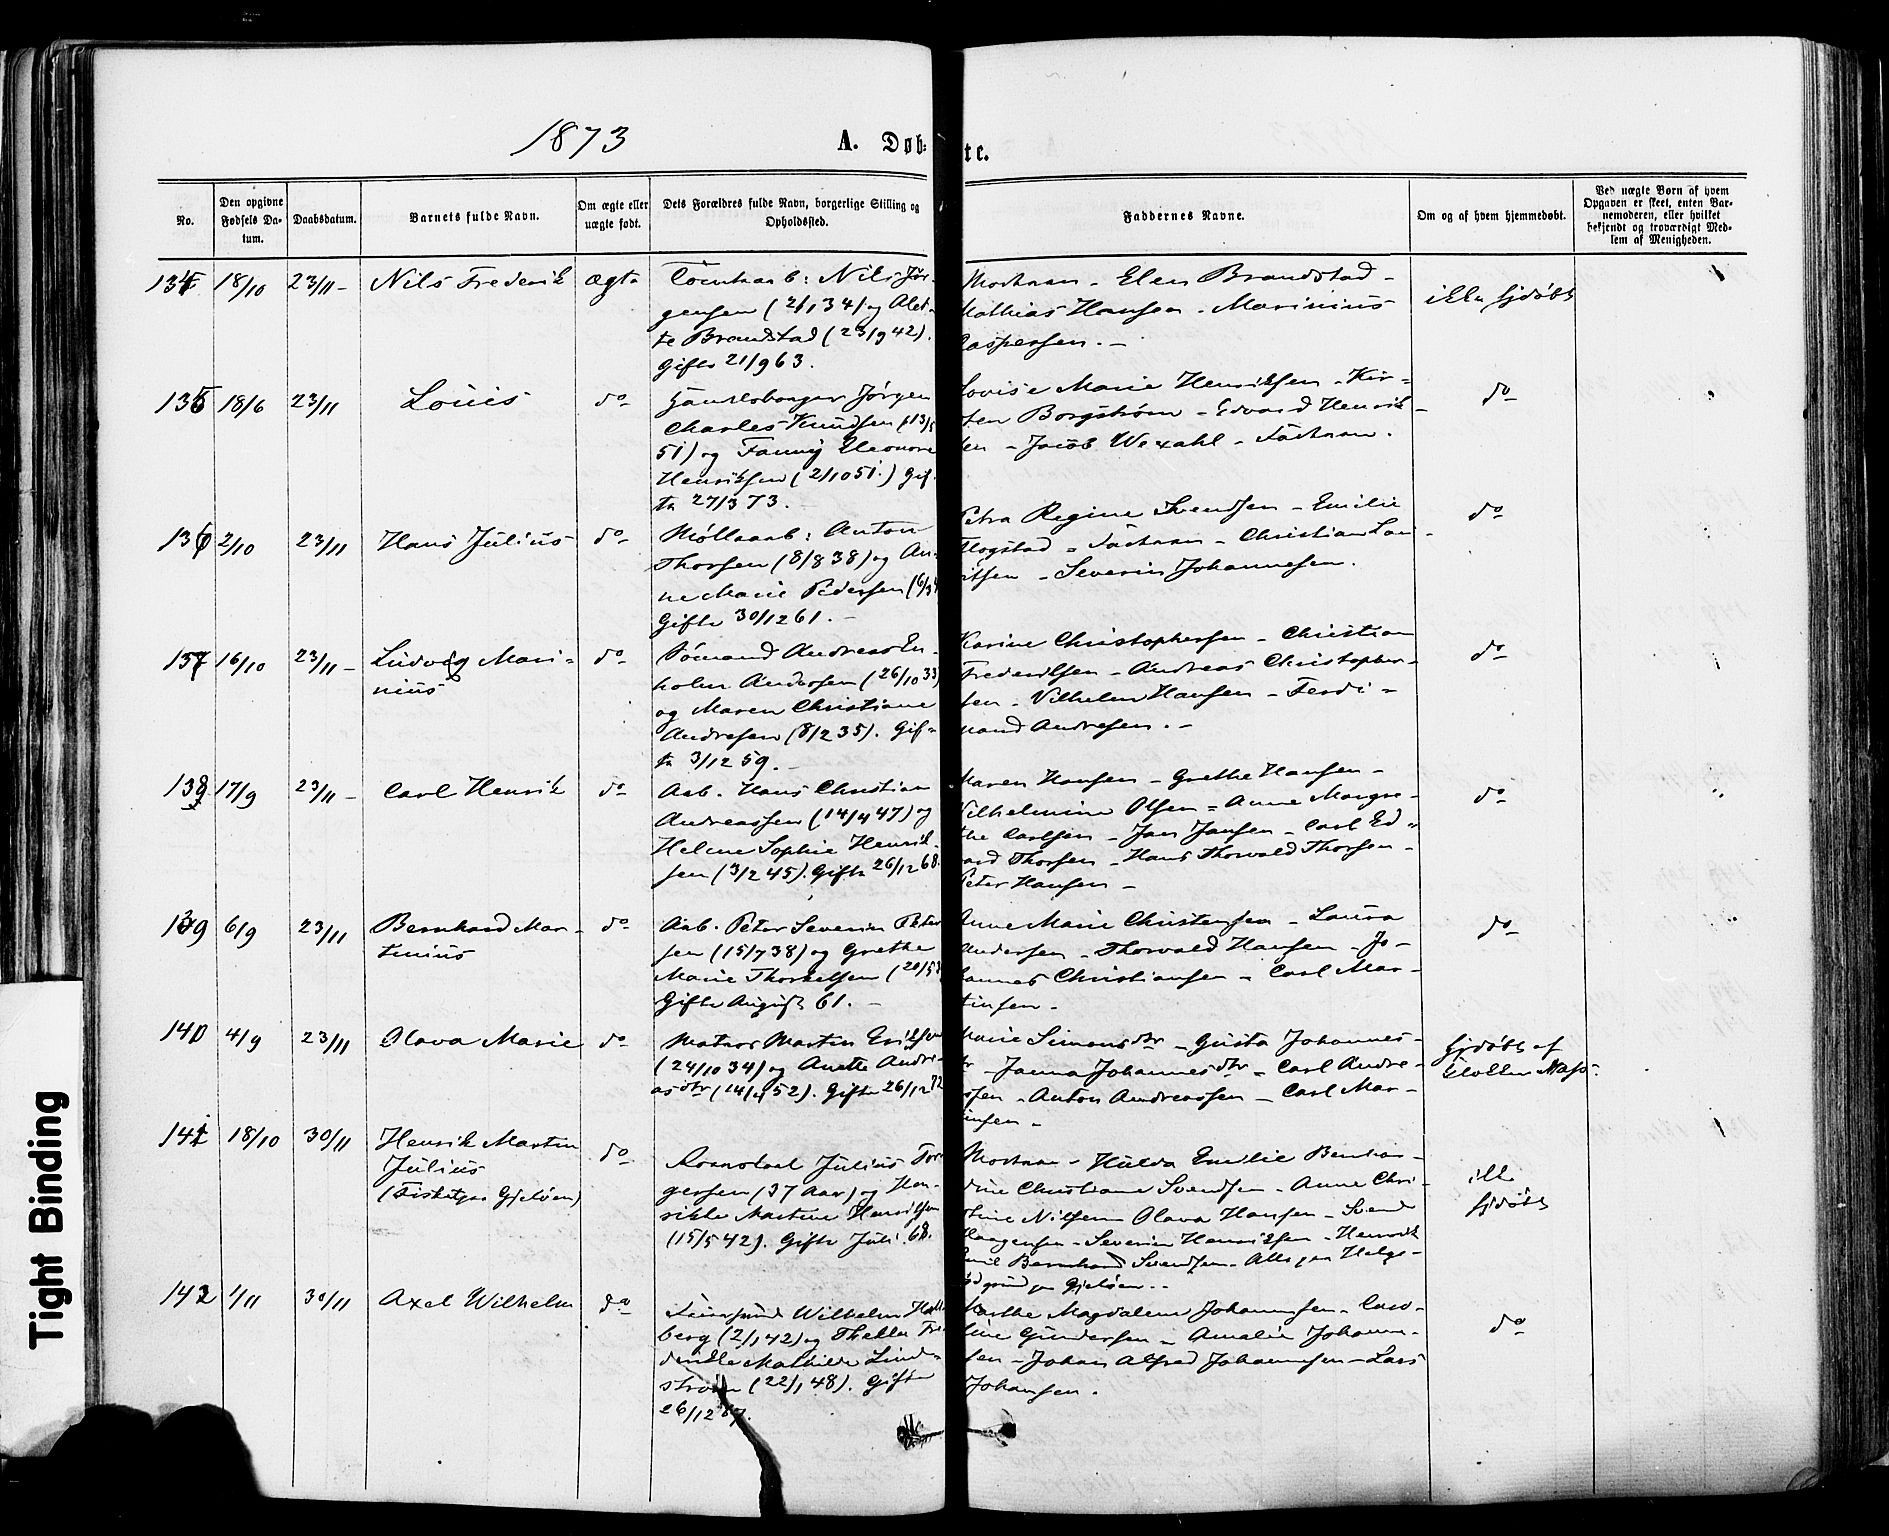 1873
A. Døb-
te.
No.
Den opgivne Fødsels Da-tum.
Daabsdatum.
Barnets fulde Navn.
Om ægte eller uægte født.
Dets Forældres fulde Navn, borgerlige Stilling og Opholdssted.
Faddernes Navne.
Om og af hvem hjemmedøbt.
Ved uægte Børn af hvem Opgaven er skeet, enten Bar-nemoderen, eller hvilket bekjendt og troværdigt Med-lem af Menigheden.
134 18/10 23/11 - Nils Frederik ægte
Nils Jør-
gensen (2/1 34) og Alet-
te Brandstad (23/9 42).
Gifte 21/9 63.
Mortnsn - Elen Brandstad -
Mathias Hansen - Marinius
Caspersen. -
ikke hjdøbt
135 18/6 23/11 Louis do
Jørgen
Charles Knudsen (13/
51) og Fanny Eleonore
Henriksen (2/10 51.) Gif-
te 27/3 73.
Lovise Marie Henriksen - Kir-
sten Borgstrøm - Edvard Henrik-
sen - Jacob Wexahl -
do
136 2/10 23/11 Hans Julius do
Møllearb: Anton
Thorsen (8/8 38) og An-
ne Marie Pedersen (6/3
Gifte 30/12 61. -
Petra Regine Svendsen - Emilie
Flogstad - Christian Lau-
ritsen - Severin Johannesen.
do
137 16/10 23/11 - Ludvig Mari-
nius
do
Sömand Andreas En-
holm Andersen (26/10 33)
og Maren Christiane
Andresen (8/2 35). Gif-
te 3/12 59. -
Karine Christophersen - Christian
Fredriksen - Andreas Christopher-
sen - Vilhelm Hansen - Ferdi-
nand Andresen. -
do
138 17/9 23/11 - Carl Henrik do
Aab. Hans Christian
Andreassen (14/4 47) og
Helene Sophie Henrik-
sen (3/2 45). Gifte 26/12 68.
Maren Hansen - Grethe Hansen -
Vilhelmine Olsen - Anne Margre-
the Carlsen - Jan Jansen - Carl Ed-
vard Thorsen - Hans Thorvald Thorsen -
Peter Hansen -
do
139 6/9 23/11 Bernhard Mar-
tinius
do
Aab. Peter Severin Peter
sen (15/7 38) og Grethe
Marie Thorkelsen (20/5
Gifte August 61. -
Anne Marie Christensen - Laura
Andersen - Thorvald Hansen - Jo-
hannes Christiansen - Carl Mar-
tinsen -
do
140 4/9 23/11 Olava Marie do
Matros Martin Eriksen
(24/10 34) og Anette Andre-
asdtr (14/4 52). Gifte 26/12 72
Marie Simensdtr - Gusta Johannes-
dtr - Janna Johannesdtr - Carl Andre-
assen - Anton Andreassen - Carl Mar-
tinsen -
hjdøbt af
141 18/10 30/11 Henrik Martin
Julius
do
Julius Tor-
gersen (37 Aar) og Hen-
rikke Martine Henriksen
(15/5 42). Gifte Juli 68.
Mortnsn - Hulda Emilie Bentsen -
Christiane Svendsen - Anne Chri-
stine Nilsen Olava Hansen - Svend
Haagensen - Severin Henriksen - Henrik
Emil Bernhard Svendsen - Alle paa Helge-
rødgrund paa Gjeløen. -
ikke
hjdøbt
142 1/11 30/11 Axel Wilhelm do
Wilhelm
berg (2/1 42) og Thella Fre-
derikke Mathilde Lind-
strøm (22/1 48). Gifte
26/12 67.
Marthe Magdalene Johannesen - Caro-
line Gundersen - Amalie Johanne-
sen - Johan Alfred Johannesen - Lars
Johansen.
do
Tight Binding